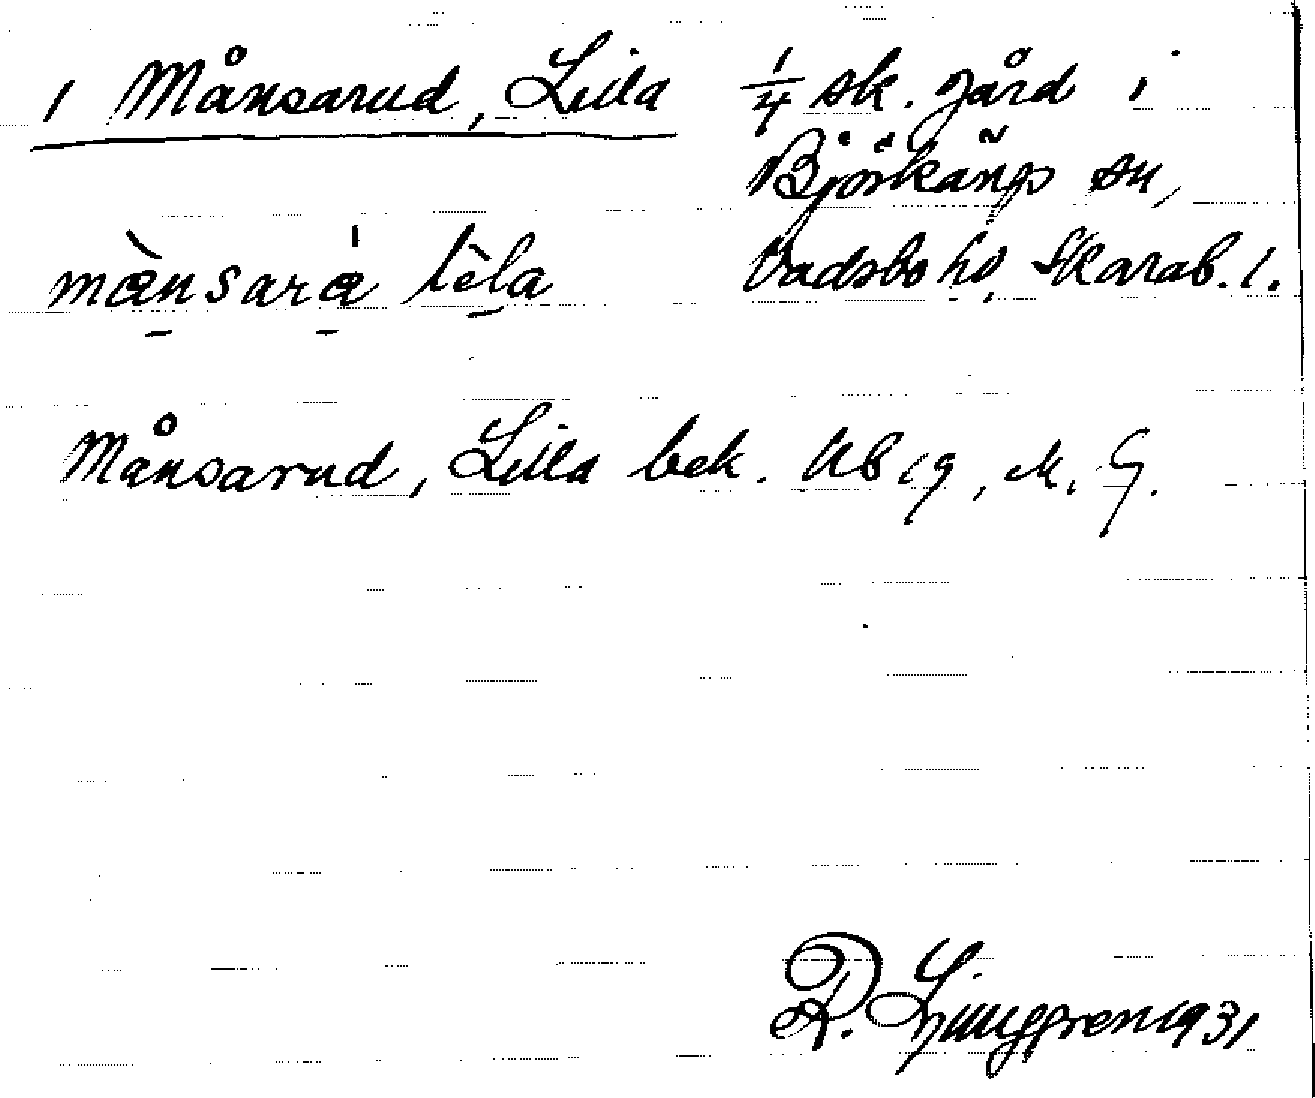 1 Månsarud, Lilla
1/4 sk. gård i
Björkängs sn,
Vadsbo hd, Skarab. l.
mànsará lèla
Månsarud, Lilla bek. Ab 19, M. G.
R. Ljunggren 1931